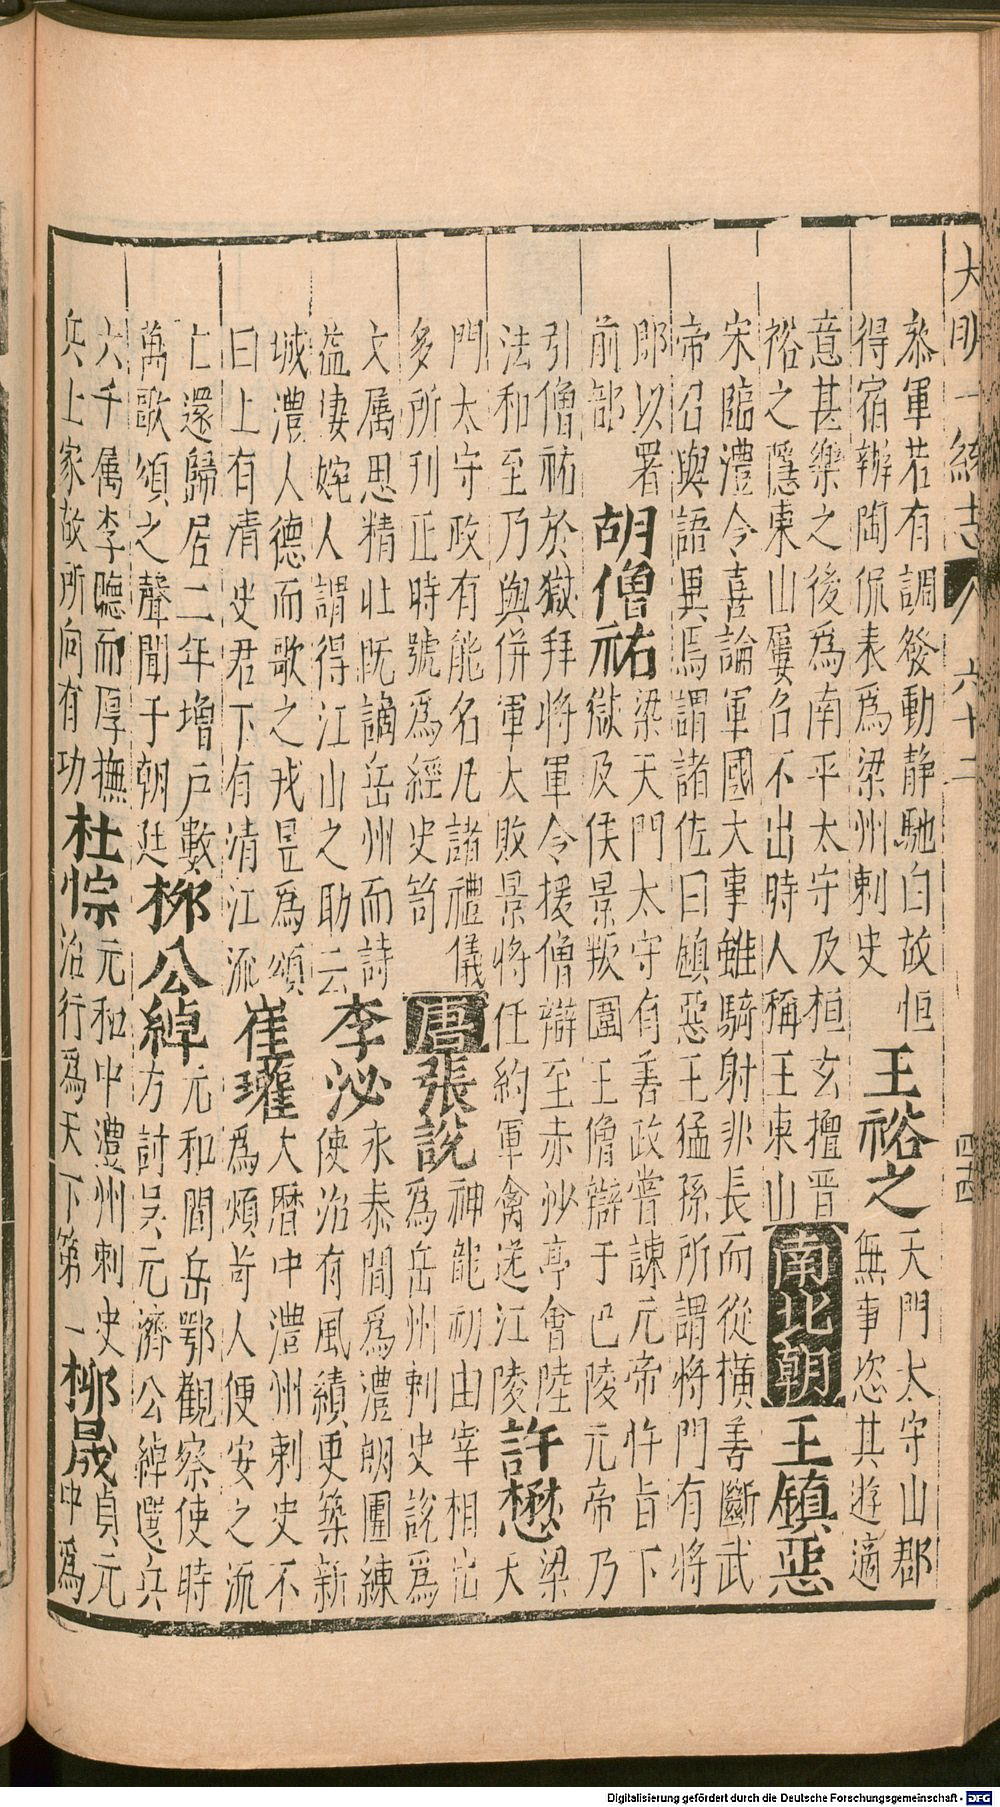 大明一統志 六十二
叅軍若有調發動静馳白故恒
得宿辦陶侃表爲梁州刺史
王裕之
天門太守山郡
無事恣其遊適
意甚樂之後爲南平太守及桓玄擅晋
裕之隱東山屢名不出時人稱王東山
南北朝
王鎮惡
宋臨澧令喜論軍國大事雖騎射非長而從橫善斷武
帝召與語異焉謂諸佐曰鎮惡王猛孫所謂將門有將
郎以署
前部
胡僧祐
梁天門太守有善政嘗諫元帝忤旨下
獄及侯景叛圍王僧辯于巴陵元帝乃
引僧祐於獄拜將軍令援僧辯至赤沙亭會陸
法和至乃與併軍大敗景將任約軍禽送江陵
許懋
梁
天
門太守政有能名凡諸禮儀
多所刋正時號爲經史笥
唐
張說
神龍初由宰相出
爲岳州刺史說爲
文属思精壯既謫岳州而詩
益悽婉人謂得江山之助云
李泌
永泰間爲澧朗團練
使治有風績更築新
城澧人德而歌之戎昱爲頌
曰上有清史君下有清江流
崔瓘
大曆中澧州刺史不
爲煩苛人便安之流
亡還歸居二年增户數
萬歌頌之聲聞于朝廷
柳公綽
元和間岳鄂觀察使時
方討吳元濟公綽選兵
六千属李聽而厚撫
兵上家故所向有功
杜悰
元和中澧州刺史
治行爲天下第一
柳晟
貞元
中爲
Digitalisierung gefördert durch die Deutsche Forschungsgemeinschaft - DFG